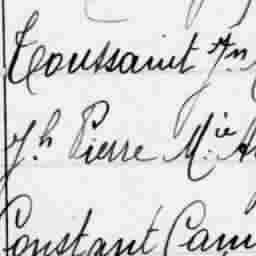 Toussaint Jn
Jh Pierre Mie A
Constant Cam